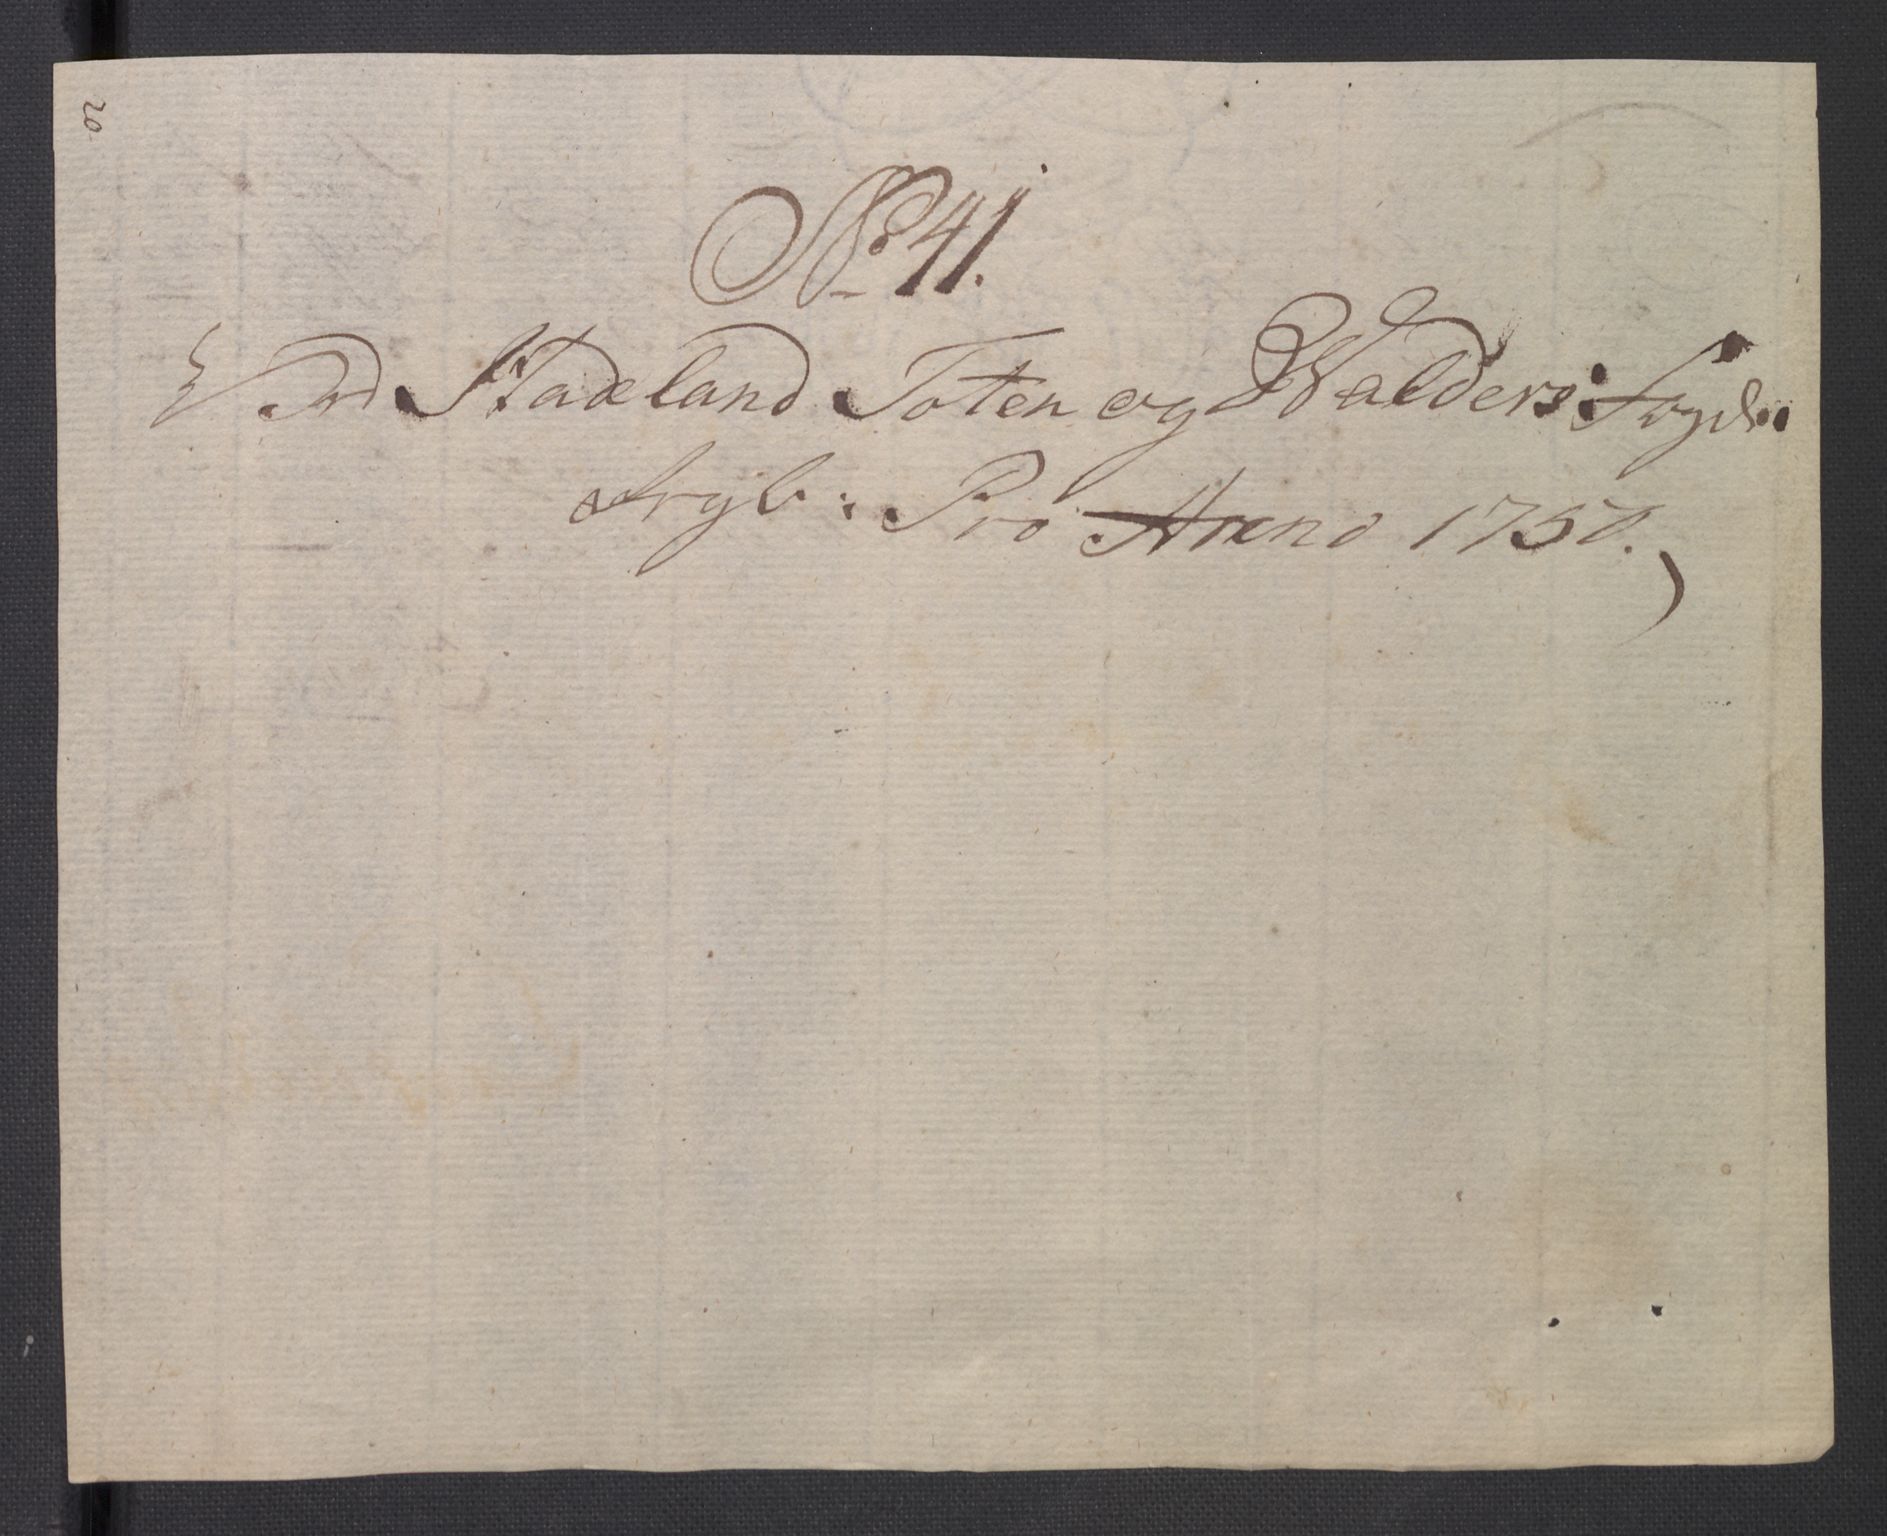 20.
No 41.
Ved Hadeland Toten og Walders: Fogd:
Pro Anno 1757.